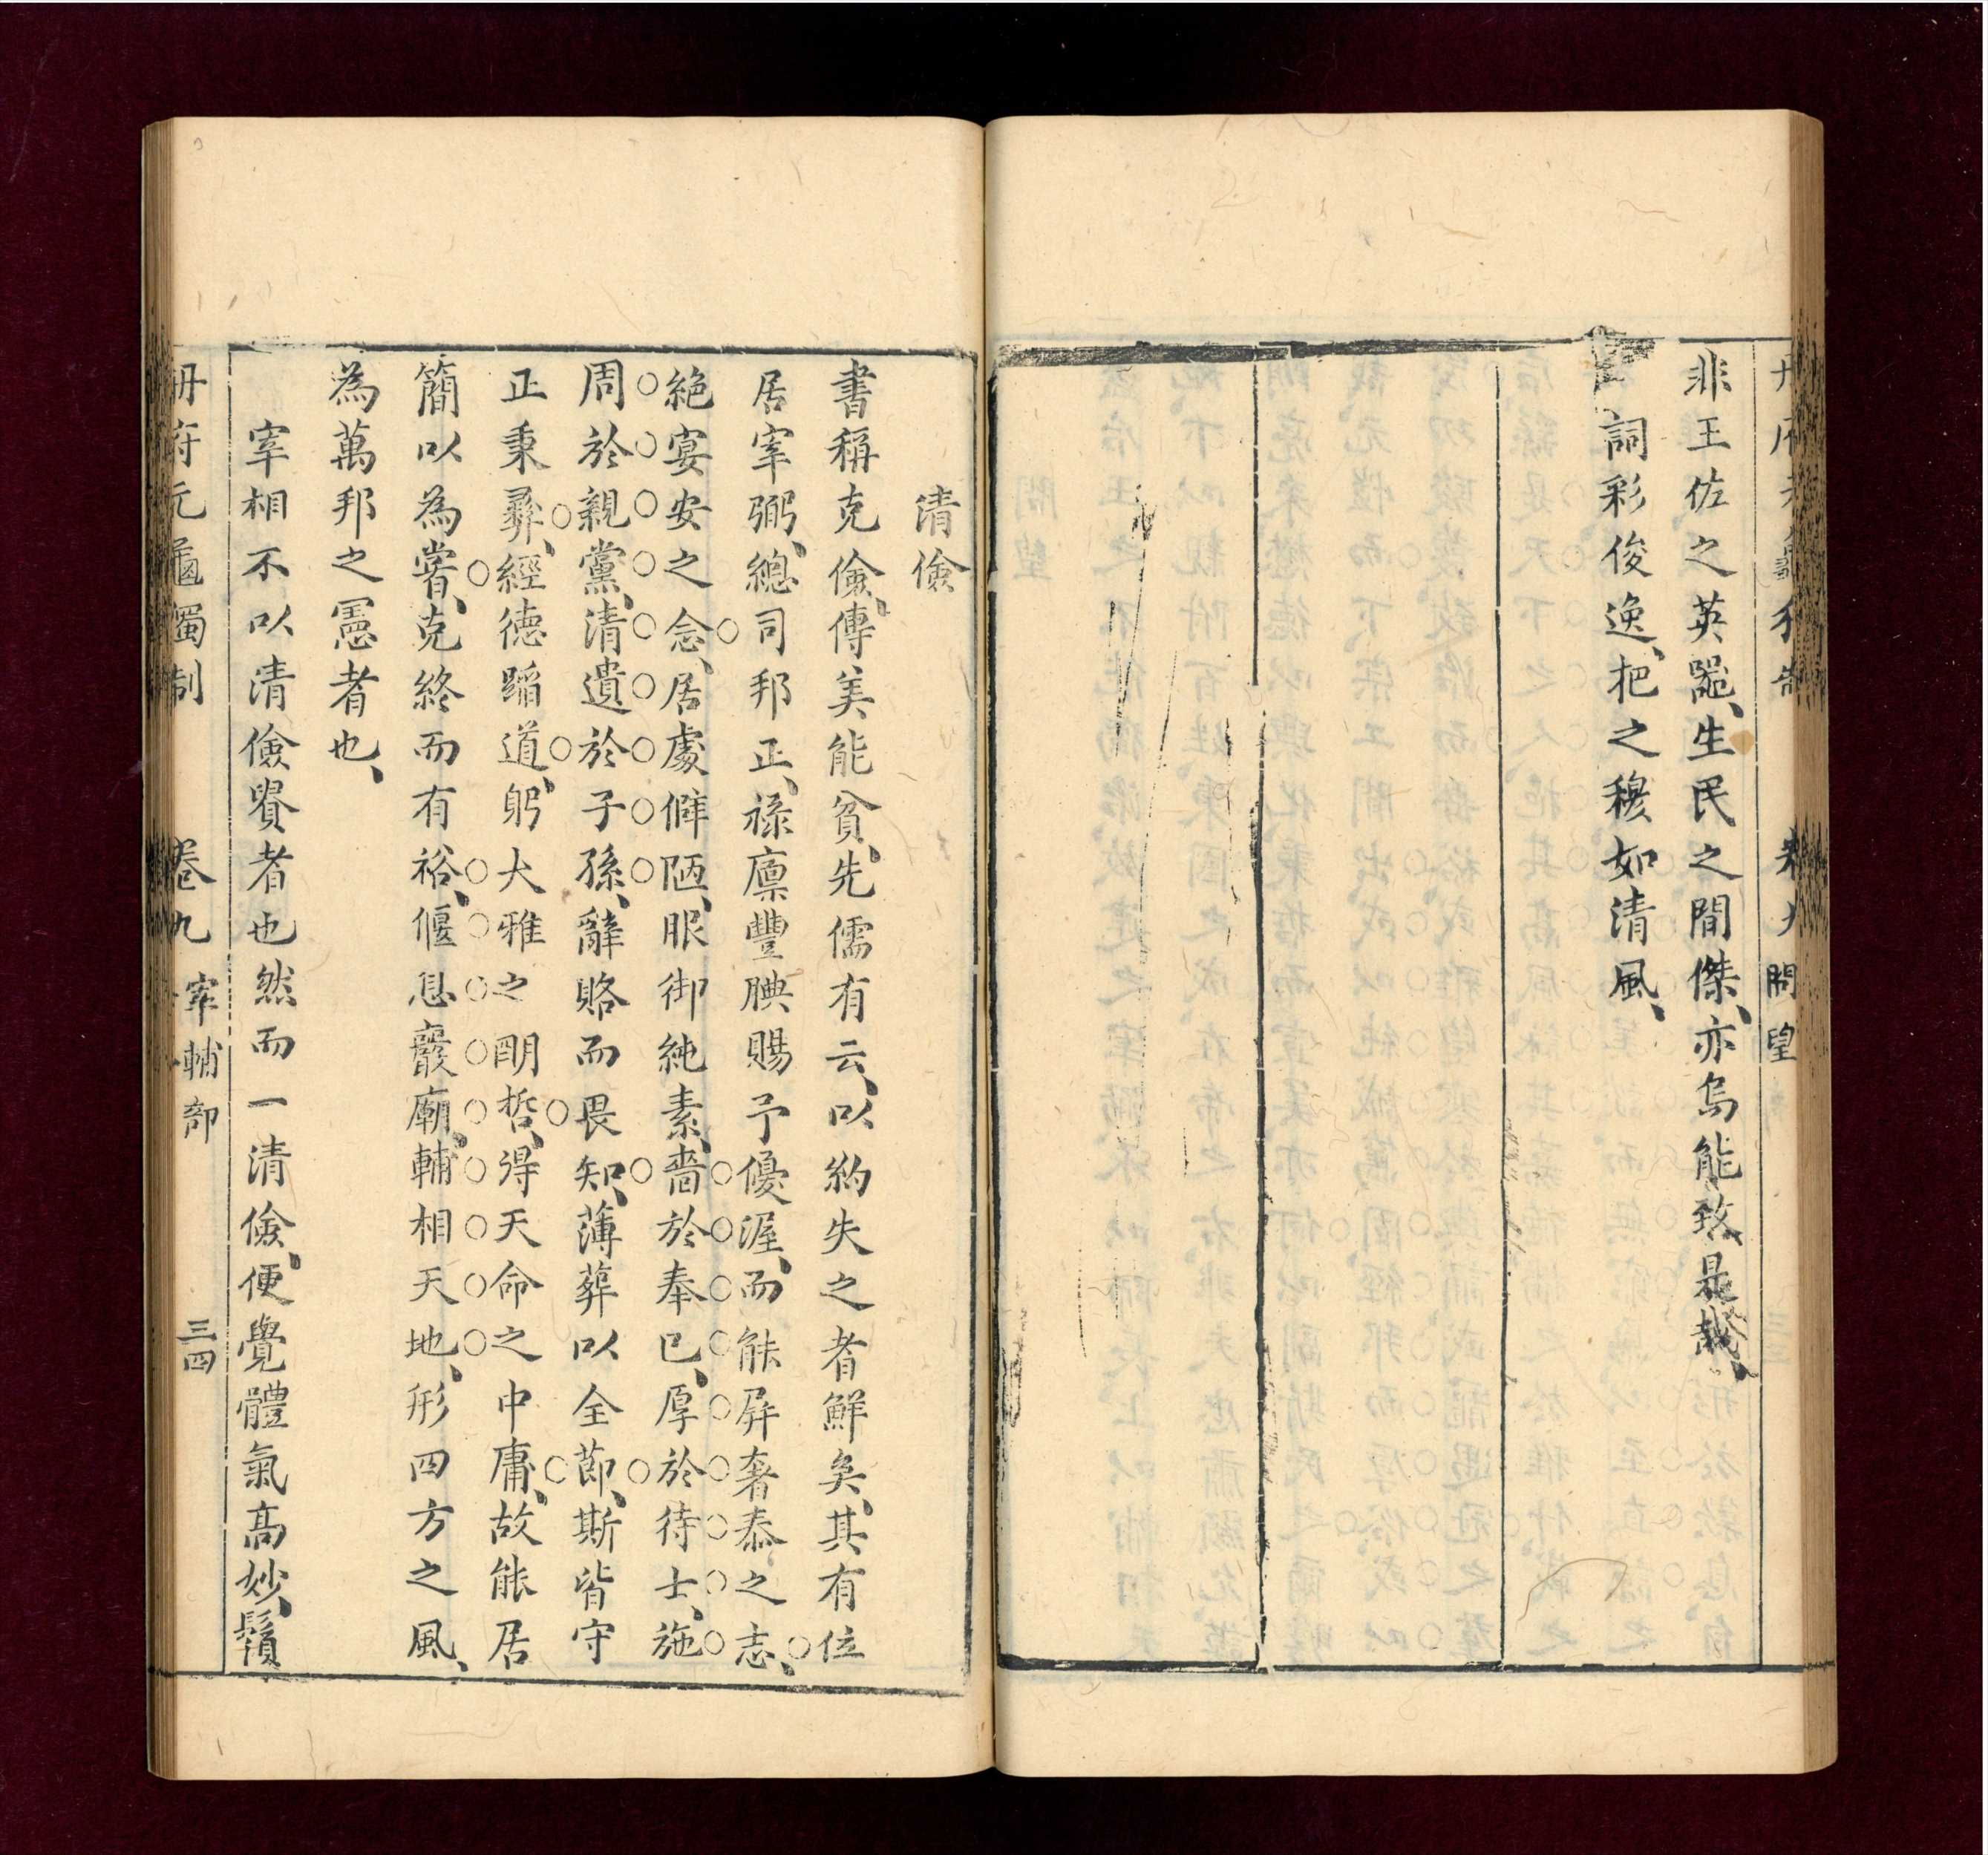 非王佐之英噐、生民之間傑、亦烏能致是哉、
詞彩俊逸、把之穆如清風、
卷九 問望
清儉
書稱克儉、傳美能貧、先儒有云、以約失之者鮮矣、其有位
居宰弼、緫司邦正、祿廪豐腆賜予優渥、而能屏奢泰之志、
絶宴安之念、居處僻陋、服御純素、嗇於奉已、厚於待士、施
周於親黨、清遺於子孫、辭賂而畏知、薄葬以全莭、斯皆守
正秉彞、經徳蹈道、躬大雅之明哲、得天命之中庸、故能居
簡以為嘗、克終而有裕、偃息巖廟、輔相天地、形四方之風、
為萬邦之憲者也、
宰相不以清儉貴者也然而一清儉、便覺體氣高妙、鬚
册府元龜獨制 卷九 宰輔部 三四